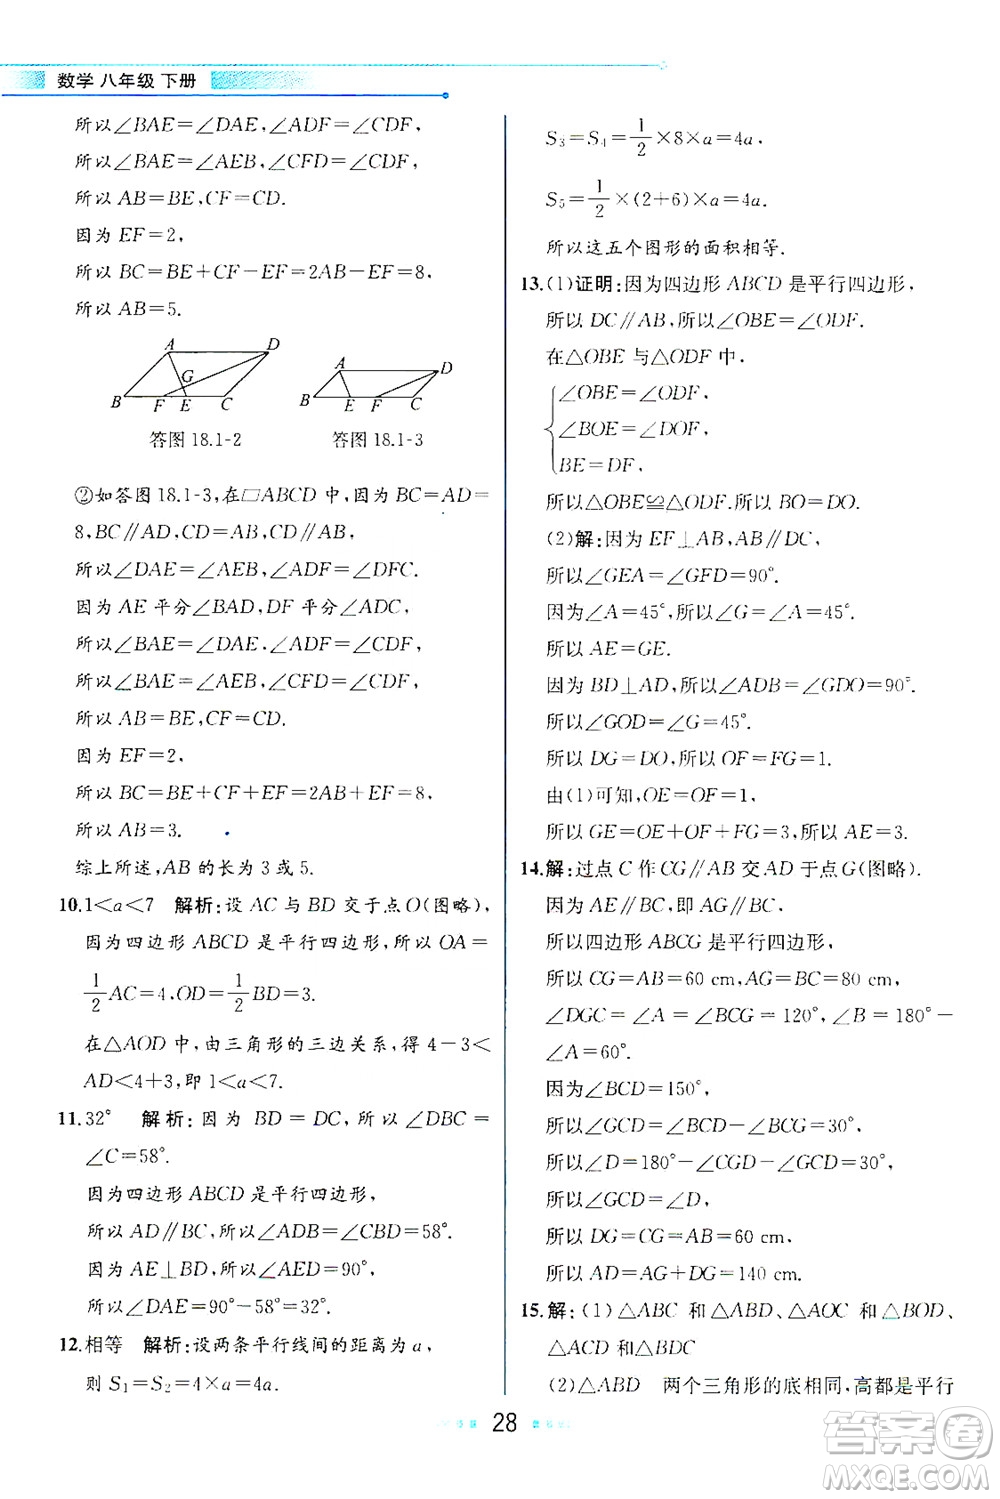 数学 八年级 下册
所以∠BAE=∠DAE,∠ADF=∠CDF,
所以∠BAE=∠AEB,∠CFD=∠CDF,
所以 AB=BE,CF=CD.
因为 EF=2,
所以 BC=BE+CF-EF=2AB-EF=8,
所以 AB=5.
A D G B F E C
A D B E F C
答图 18.1-2 答图 18.1-3
②如答图 18.1-3,在▱ABCD 中,因为 BC=AD=
8,BC∥AD,CD=AB,CD∥AB,
所以∠DAE=∠AEB,∠ADF=∠DFC.
因为 AE 平分∠BAD,DF 平分∠ADC,
所以∠BAE=∠DAE,∠ADF=∠CDF,
所以∠BAE=∠AEB,∠CFD=∠CDF,
所以 AB=BE,CF=CD.
因为 EF=2,
所以 BC=BE+CF+EF=2AB+EF=8,
所以 AB=3.
综上所述,AB 的长为 3 或 5.
10.1<a<7 解析:设 AC 与 BD 交于点 O(图略),
因为四边形 ABCD 是平行四边形,所以 OA=
1/2 AC=4,OD=1/2 BD=3.
在△AOD 中,由三角形的三边关系,得 4-3<
AD<4+3,即 1<a<7.
11.32° 解析:因为 BD=DC,所以∠DBC=
∠C=58°.
因为四边形 ABCD 是平行四边形,
所以 AD∥BC,所以∠ADB=∠CBD=58°.
因为 AE⊥BD,所以∠AED=90°,
所以∠DAE=90°-58°=32°.
12.相等 解析:设两条平行线间的距离为 a,
则 S₁=S₂=4×a=4a.
S₃=S₄=1/2×8×a=4a,
S₅=1/2×(2+6)×a=4a.
所以这五个图形的面积相等.
13.(1)证明:因为四边形 ABCD 是平行四边形,
所以 DC∥AB,所以∠OBE=∠ODF.
在△OBE 与△ODF 中,
∠OBE=∠ODF,
∠BOE=∠DOF,
BE=DF,
所以△OBE≌△ODF.所以 BO=DO.
(2)解:因为 EF⊥AB,AB∥DC,
所以∠GEA=∠GFD=90°.
因为∠A=45°,所以∠G=∠A=45°.
所以 AE=GE.
因为 BD⊥AD,所以∠ADB=∠GDO=90°.
所以∠GOD=∠G=45°.
所以 DG=DO,所以 OF=FG=1.
由(1)可知,OE=OF=1,
所以 GE=OE+OF+FG=3,所以 AE=3.
14.解:过点 C 作 CG∥AB 交 AD 于点 G(图略).
因为 AE∥BC,即 AG∥BC,
所以四边形 ABCG 是平行四边形,
所以 CG=AB=60 cm,AG=BC=80 cm,
∠DGC=∠A=∠BCG=120°,∠B=180°-
∠A=60°.
因为∠BCD=150°,
所以∠GCD=∠BCD-∠BCG=30°,
所以∠D=180°-∠CGD-∠GCD=30°,
所以∠GCD=∠D,
所以 DG=CG=AB=60 cm,
所以 AD=AG+DG=140 cm.
15.解:(1)△ABC 和△ABD、△AOC 和△BOD、
△ACD 和△BDC
(2)△ABD 两个三角形的底相同,高都是平行
28
答案圈
MXQE.COM